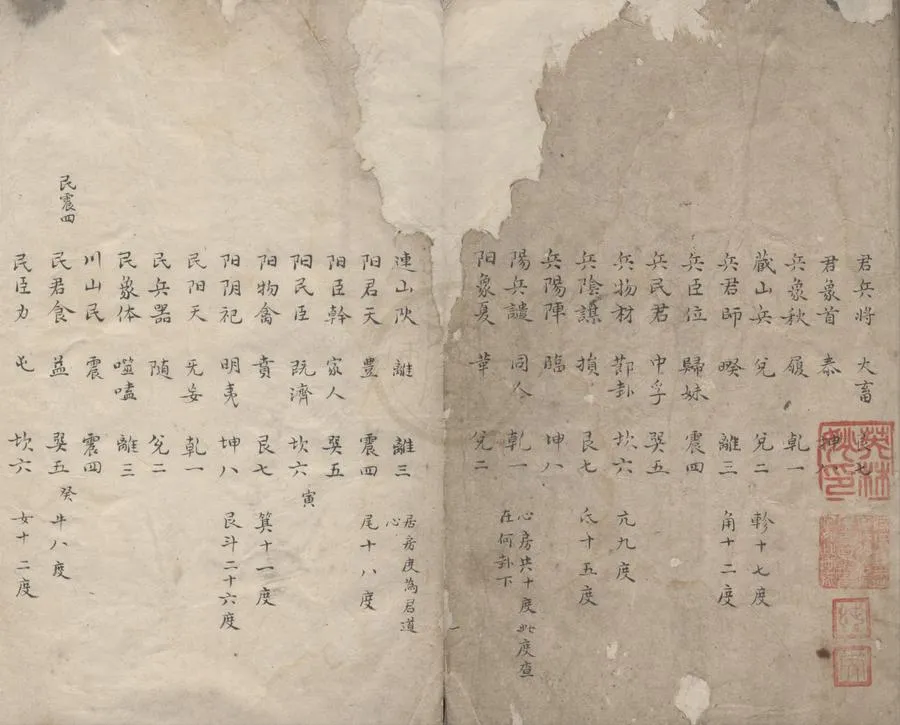 君兵将 大畜 艮七
君象首 泰 坤八
兵象秋 履 乾一
蔵山兵 兌 兌二 軫十七度
兵君師 睽 離三 角十二度
兵臣位 歸妹 震四
兵民君 中孚 巽五
兵物材 節卦 坎六 亢九度
兵陰謀 損 艮七 氐十五度
兵陽陣 臨 坤八
陽兵譴 同人 乾一 心房共十度此度查
在何卦下
阳象夏 革 兌二
連山阳 離 離三 居房度為君道
心
阳君天 豊 震四 尾十八度
阳臣幹 家人 巽五
阳民臣 既濟 坎六 寅
阳物禽 賁 艮七 箕十一度
阳阴祀 明夷 坤八 艮斗二十六度
民阳天 无妄 乾一
民兵器 随 兌二
民象体 噬嗑 離三
川山民 震 震四
民震四
民君食 益 巽五 癸 牛八度
民臣力 屯 坎六 女十二度